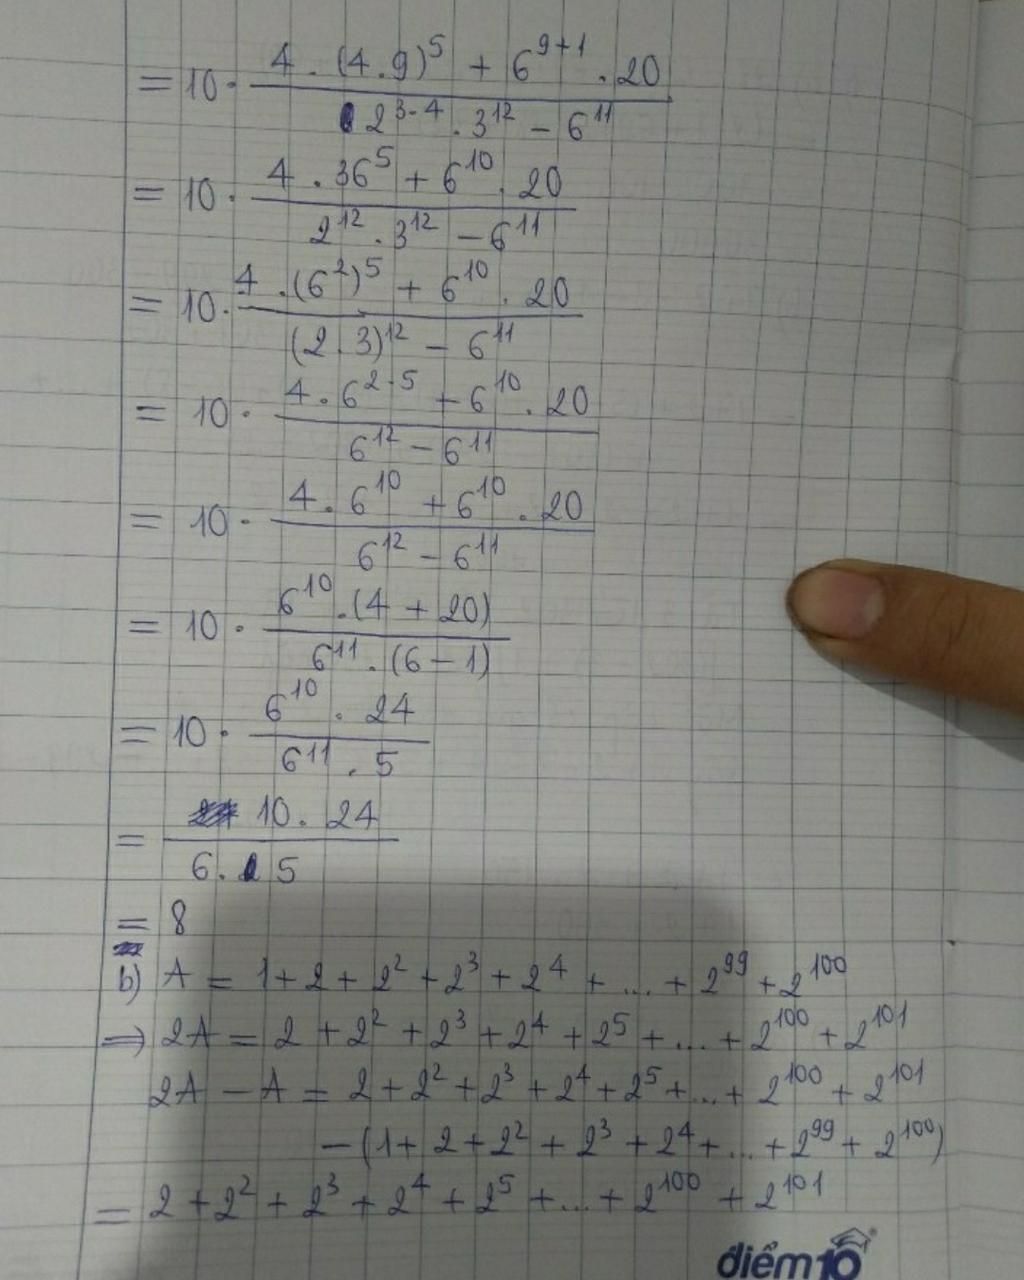 = 10 . \frac{4 . (4 . 9)^5 + 6^{9+1} . 20}{2^{3.4} . 3^{12} - 6^{11}}
= 10 . \frac{4 . 36^5 + 6^{10} . 20}{2^{12} . 3^{12} - 6^{11}}
= 10 . \frac{4 . (6^2)^5 + 6^{10} . 20}{(2 . 3)^{12} - 6^{11}}
= 10 . \frac{4 . 6^{2.5} + 6^{10} . 20}{6^{12} - 6^{11}}
= 10 . \frac{4 . 6^{10} + 6^{10} . 20}{6^{12} - 6^{11}}
= 10 . \frac{6^{10} . (4 + 20)}{6^{11} . (6 - 1)}
= 10 . \frac{6^{10} . 24}{6^{11} . 5}
= \frac{10 . 24}{6 . 5}
= 8
b) A = 1 + 2 + 2^2 + 2^3 + 2^4 + ... + 2^{99} + 2^{100}
⇒ 2A = 2 + 2^2 + 2^3 + 2^4 + 2^5 + ... + 2^{100} + 2^{101}
2A - A = 2 + 2^2 + 2^3 + 2^4 + 2^5 + ... + 2^{100} + 2^{101}
- (1 + 2 + 2^2 + 2^3 + 2^4 + ... + 2^{99} + 2^{100})
= 2 + 2^2 + 2^3 + 2^4 + 2^5 + ... + 2^{100} + 2^{101}
điểm10